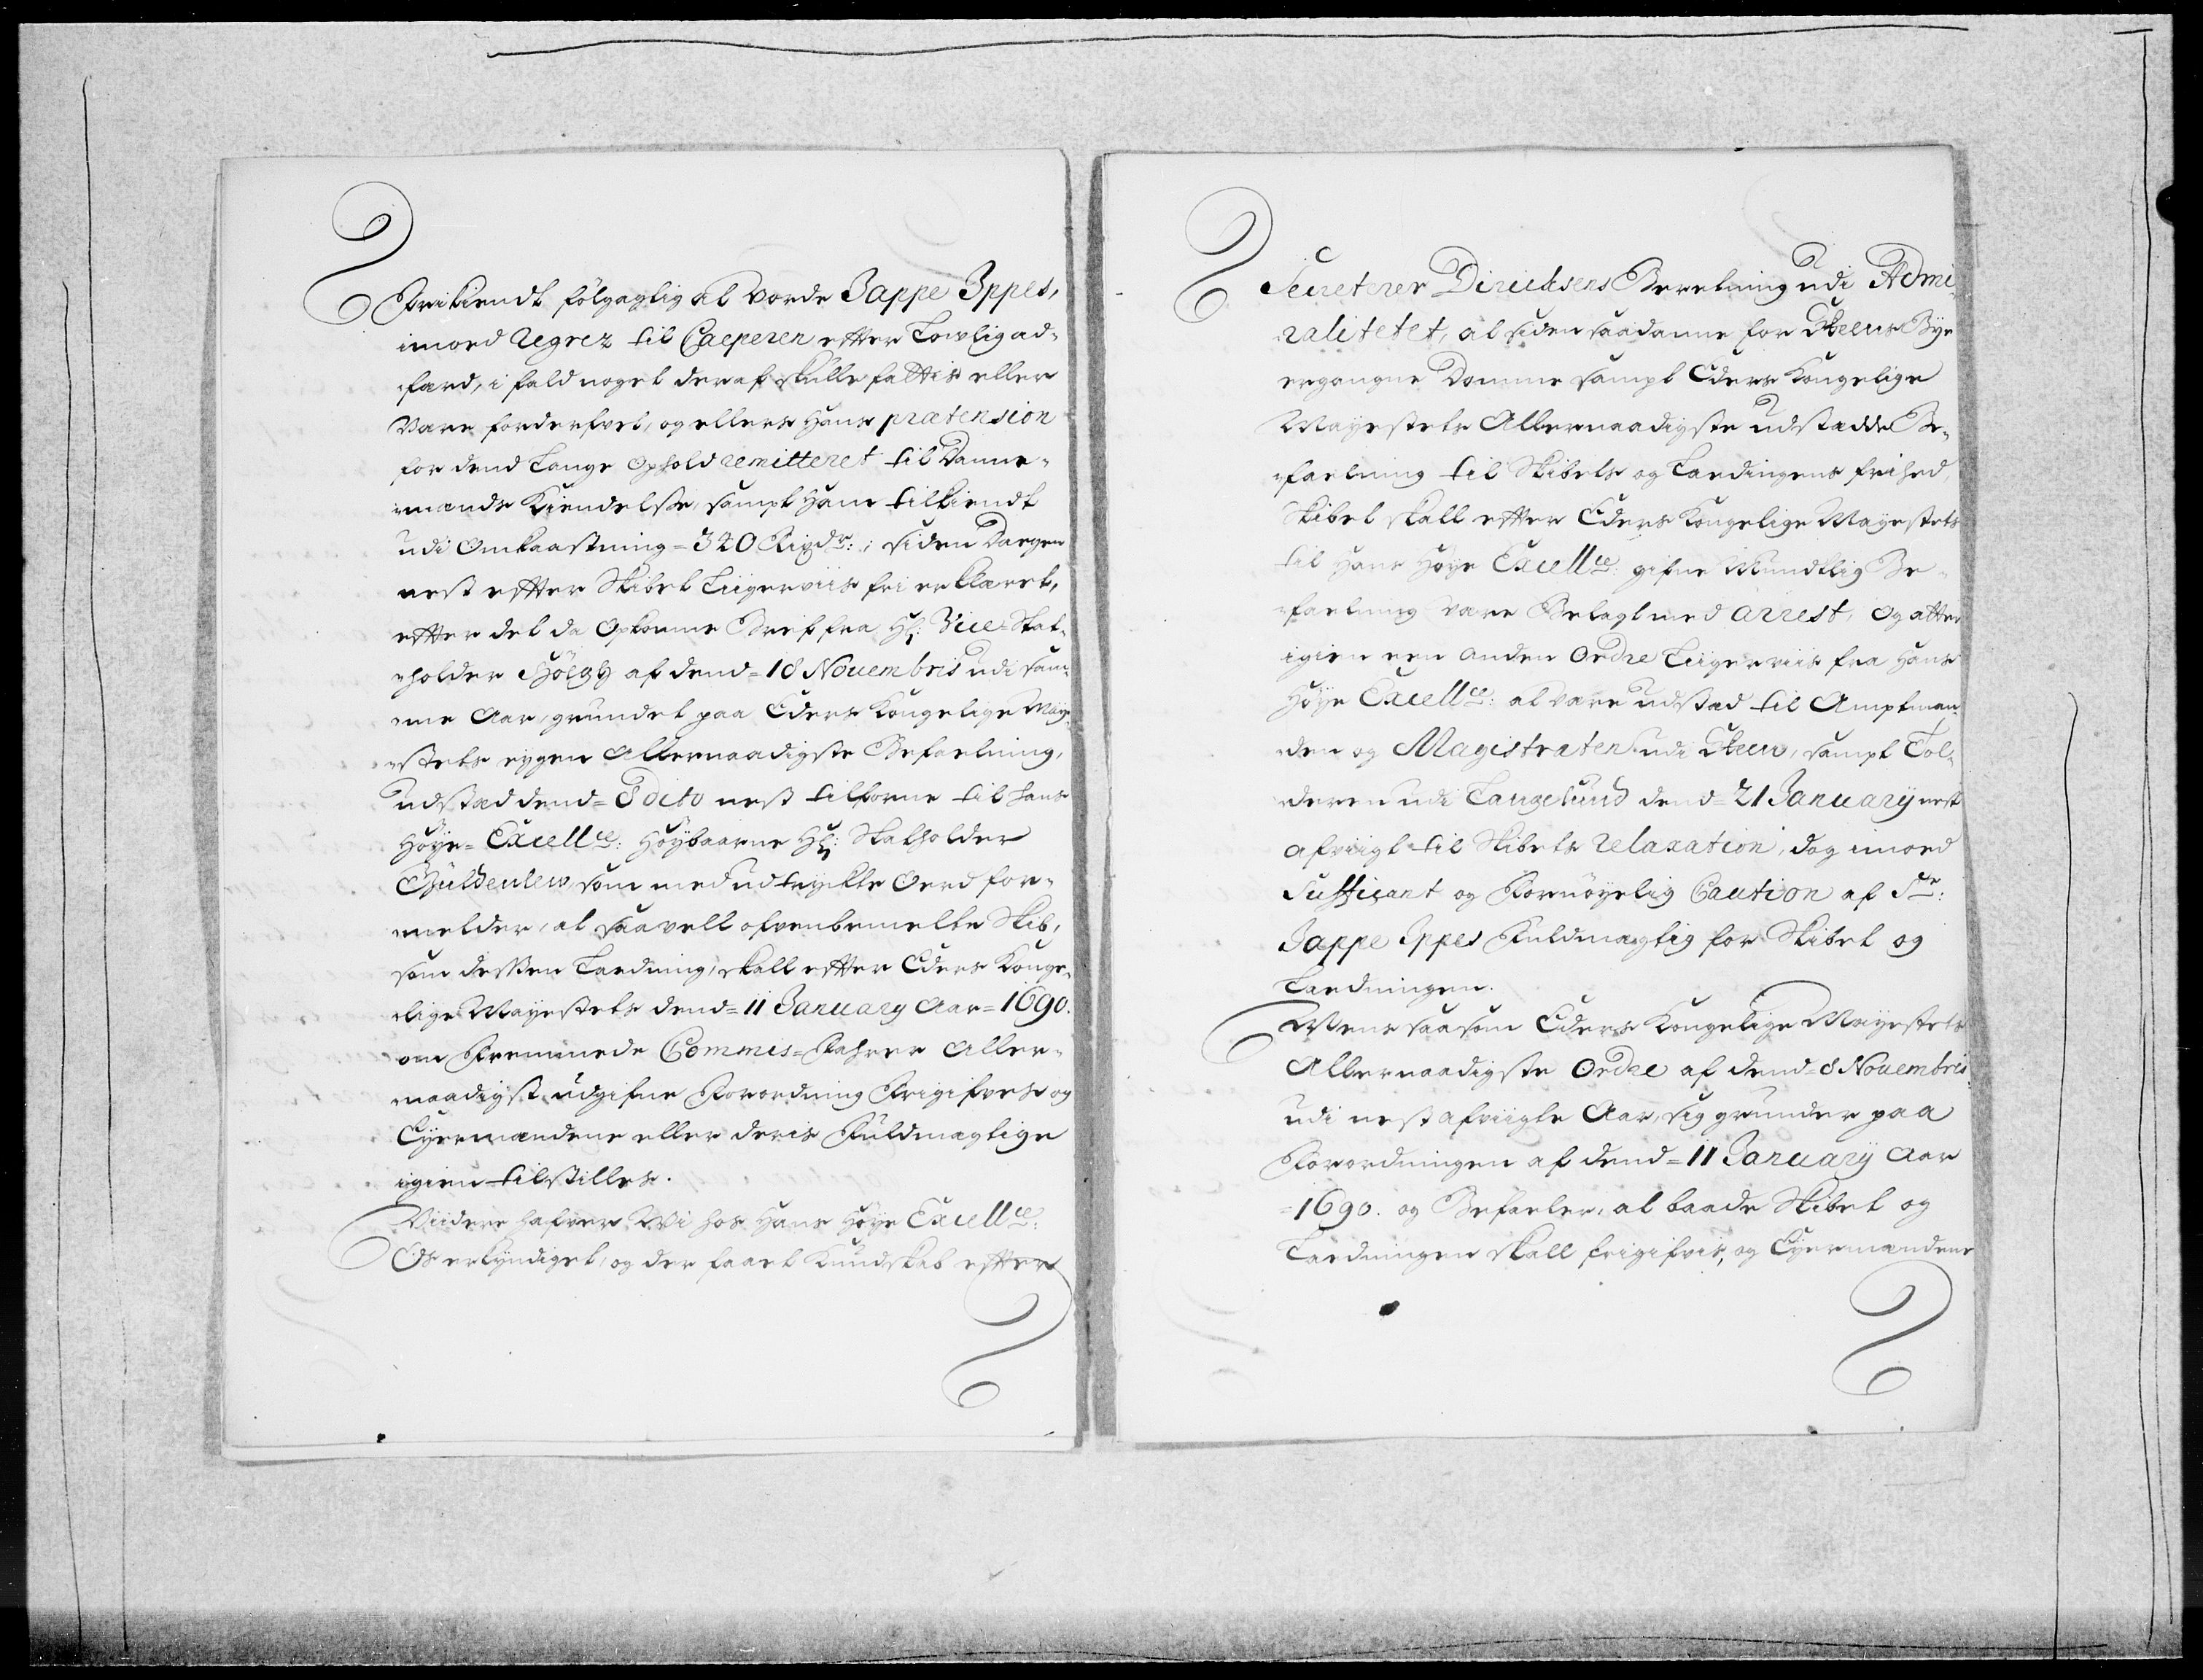 Frikiendt følgagtlig at vorde Jappe Ippes,
imoed Regrez til Caeperen effter Lowlig ad-
færd, i fald noget deraf skulle fattis eller
Være forderfvet, og ellers hans prætension
for dend Lange Ophold remitteret til Danne-
mænds Kiendelse, sampt ham tilkiendt
udi Omkaastning = 320 Rixdr: ; siden Dagen
nest effter Skibet Liigerviis fri erklæret,
effter det da Opkomne Bref fra Hr: Vice-Stat-
holder af dend = 18 Novembris udi sam-
me Aar, grundet paa Eders Kongelige May-
estets eygen Allernaadigste Befaelning,
udstæd dend = 8 dito nest tilforne til hans
Høye = Excellce: Høybaarne Hr: Statholder
Güldenlew, som med udtryckte Oerd for-
melder, at saavell ofvenbemelte Skib,
som dessen Laedning, skall effter Eders Konge-
lige Mayestets dend = 11 January Aar = 1690.
om Fremmede Commis-Fahrer Aller-
naadigst udgifne Forordning Frigifves og
Eyermændene eller deris Fuldmagtige
igien tilstilles.
Viidere hafver Wi hos Hans Høye Excellce:
Os erkyndiget, og der faaet Kundskab effter
Secreterer Diricksens Beretning udi Admi-
ralitetet, at siden saadanne for Skeens Bye
ergangne Domme sampt Eders Kongelige
Mayestets Allernaadigste udstædde Be-
faelning til Skibets og Laedingens frihed,
Skibet skall effter Eders Kongelige Mayestets
til Hans Høye Excellce: gifne Mundtlig Be-
faelning være Belagt med Arrest, og atter
igien een anden Ordre Liigerviis fra Hans
Høye Excellce: at være udstæd til Amptman-
den og Magistraten udi Skeen, sampt Tol-
deren udi Langesund dend = 21 January nest
afviigt til Skibets Relaxation, dog imoed
Sufficant og Fornøyelig Caution af Sr:
Jappe Ippes Fuldmagtig for Skibet og
Laedningen.
Mens saasom Eders Kongelige Mayestets
Allernaadigste Ordre af dend = 8 Novembris
udi nest afviigte Aar, sig grunder paa
Forordningen af dend = 11 January Aar
= 1690. og Befaeler, at baade Skibet og
Laedningen skall frigifvis, og Eyermændene